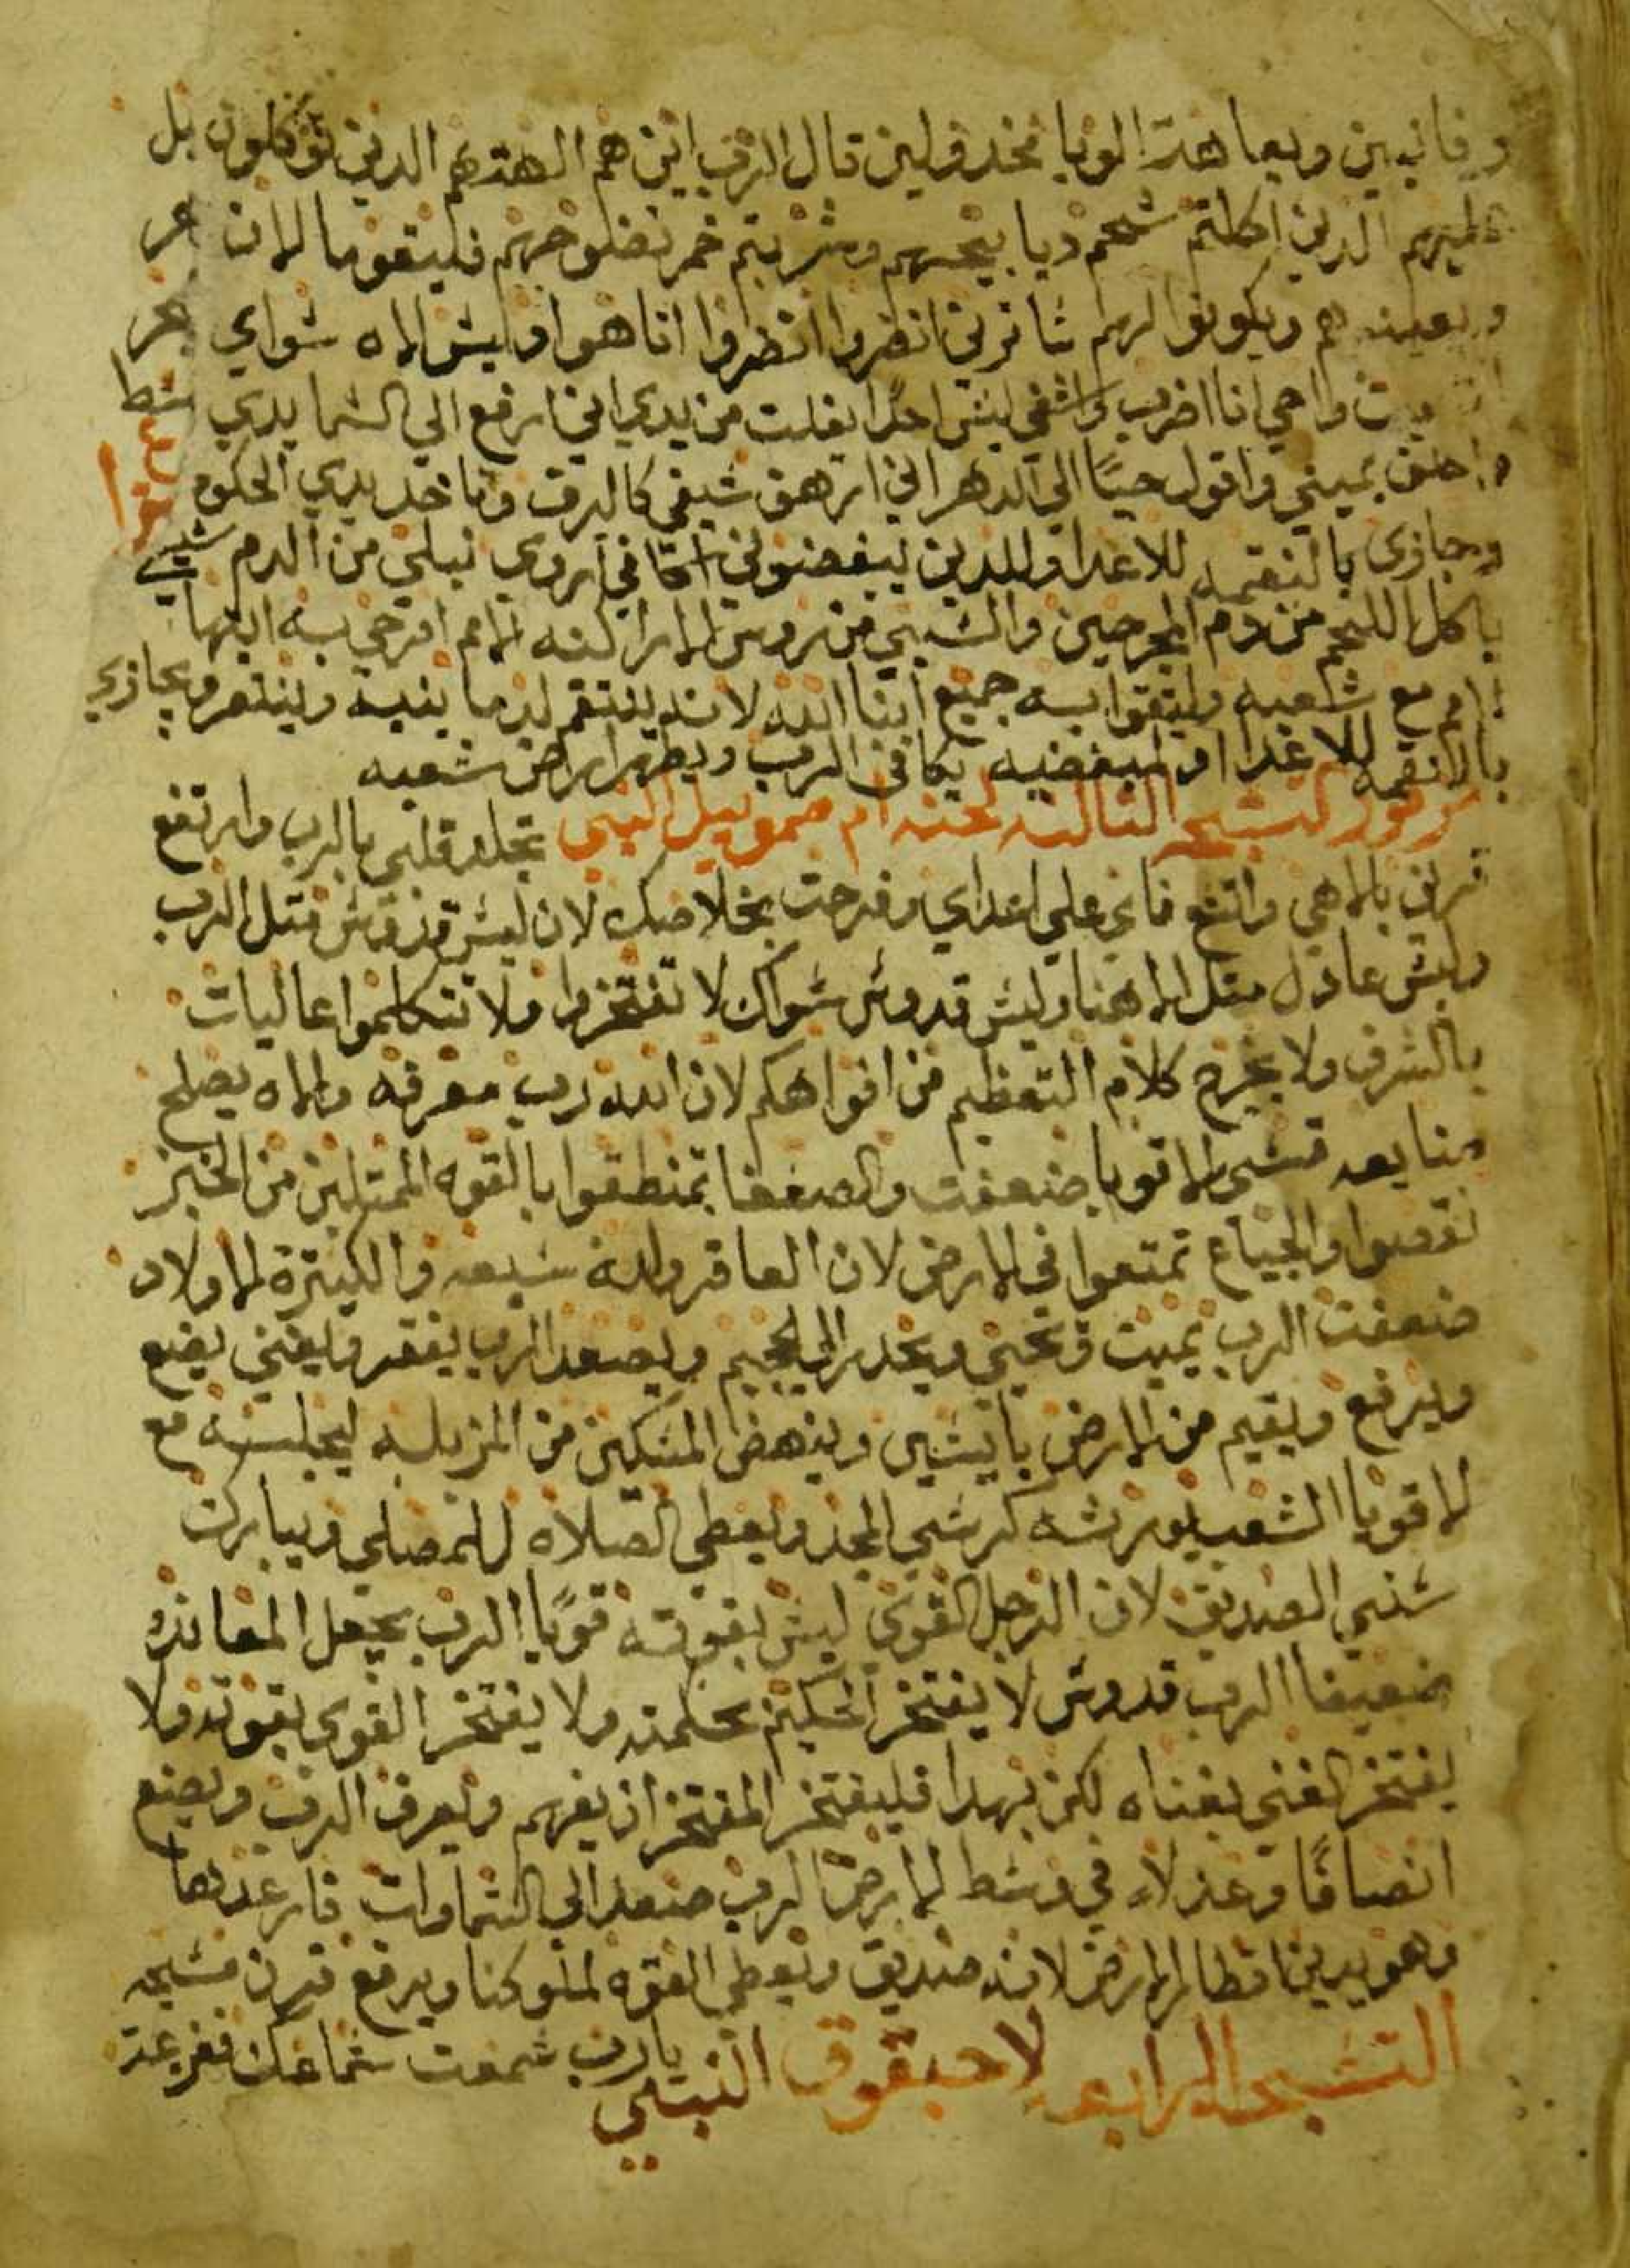 وفانيين وبعا هذا الوبا مخدولين قال الرب اين هم الهتهم الدين توكلون بل
عليهم الدين اكلتم شحم دبايحهم وشربتم خمر نضلوحهم فليقوموا الان
وبعينوهم ويكونوا لهم شاترين انظروا انظروا انا هوا وليش الاه شواي
اميت واحي انا اضرب واشفي ليش احدا يفلت من يدي اني ارفع الي الشما يدي
واحلف بيميني واقول حيًا الي الدهر اني ارهق شيفي كالبرق وتاخد يدي الحكوم
وجازي بالنقمه للاعدا وللدين يبغضوني اكافي اروي نبلي من الدم شيفي
ياكل اللحم من دم المجرحين والشبي من روش الاراكنه الامم افرحي به ايتها
الامم مع شعبه وليتقوا به جميع ابنا الله لانه ينتقم لدما بنيه وينتقم ويجازي
بالنقمه للاعدا ولمبغضيه يكافي الرب ويطهر ارض شعبه
مزمور التشبحه التالته لحنه ام صمويل النبي تجلد قلبي بالرب وارتفع
قرني بالاهي واتشع فاي علي اعداي وفرحت بخلاصك لان ليش قدوش متل الرب
وليش عادل متل الاهنا وليش قدوش شواك لا تفتخروا ولا تتكلموا عاليات
بالشرف ولا يخرج كلام التعظيم من افواهكم لان الله رب معرفه والاه يصلح
صنايعه قشي الاقويا ضعفت والضعفا تمنطقوا بالقوه الممتلين من الخبز
نقصوا والجياع تمتعوا في الارض لان العاقر ولدة شبعه والكتيرة الاولاد
ضعفت الرب يميت وتحيي ويحدر الي الجحيم ويصعد الرب يفقر ويغني يضع
ويرفع ويقيم من الارض بايشين وينهض المشكين من المزبله ليجلسه مع
الاقويا الشعب يورثه كرشي المجد ويعطي الصلاه للمصلي ويبارك
شني الصديق لان الرجل القوي ليش بقوته قويًا الرب يجعل المعانده
ضعيفا الرب قدوش لا يفتخر الحكيم بحكمته ولا يفتخر القوي بقوته ولا
يفتخر الغني بغناه لكن بهدا فليفتخر المفتخر ان يفهم ويعرف الرب ويصنع
انصافًا وعدلا في وشط الارض الرب صعد الي الشماوات فارعدها
وهو يدين اقطار الارض لانه صديق ويعطي القوه لملوكنا ويرفع قرن مشيحه
التشبحه الرابعه لاحبقوق النبي يارب شمعت شماعك ففزعت